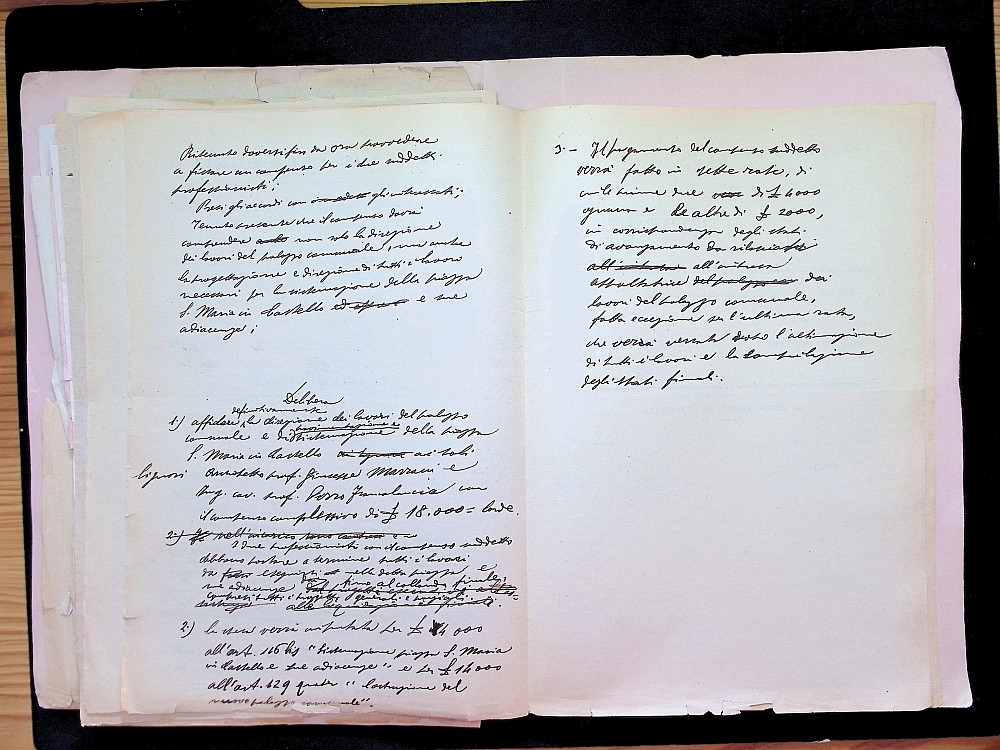 Ritenuto doversi fin da ora provvedere
a fissare un compenso per i due suddetti
professionisti;
Presi gli accordi con gli interessati;
Tenuto presente che il compenso dovrà
comprendere non solo la direzione
dei lavori del palazzo comunale, ma anche
la progettazione e direzione di tutti i lavori
necessari per la sistemazione della piazza
S. Maria in Castello e sue
adiacenze;
Delibera
definitivamente
1) affidare la direzione dei lavori del palazzo
comunale e di sistemazione della piazza
S. Maria in Castello ai soli
signori Architetto prof. Giuseppe e
Ing. cav. prof. con
il compenso complessivo di £ 18.000= lorde.
2) nell'incarico
I due professionisti con il compenso suddetto
debbono portare a termine tutti i lavori
da eseguirsi nella detta piazza e
sue adiacenze fino al collaudo finale,
compresi tutti i progetti generali e parziali
alla liquidazione finale.
2) la spesa verrà imputata per £ 4000
all'art. 116 bis "Sistemazione piazza S. Maria
in Castello e sue adiacenze" e per £ 14000
all'art. 129 quater "Costruzione del
nuovo palazzo comunale".
3.- Il pagamento del compenso suddetto
verrà fatto in sette rate, di
cui le prime due di £ 4000
ognuna e le altre di £ 2000,
in corrispondenza degli stati
di avanzamento da rilasciarsi
all'impresa
appaltatrice dei
lavori del palazzo comunale,
fatta eccezione per l'ultima rata,
che verrà versata dopo l'ultimazione
di tutti i lavori e la compilazione
degli stati finali.